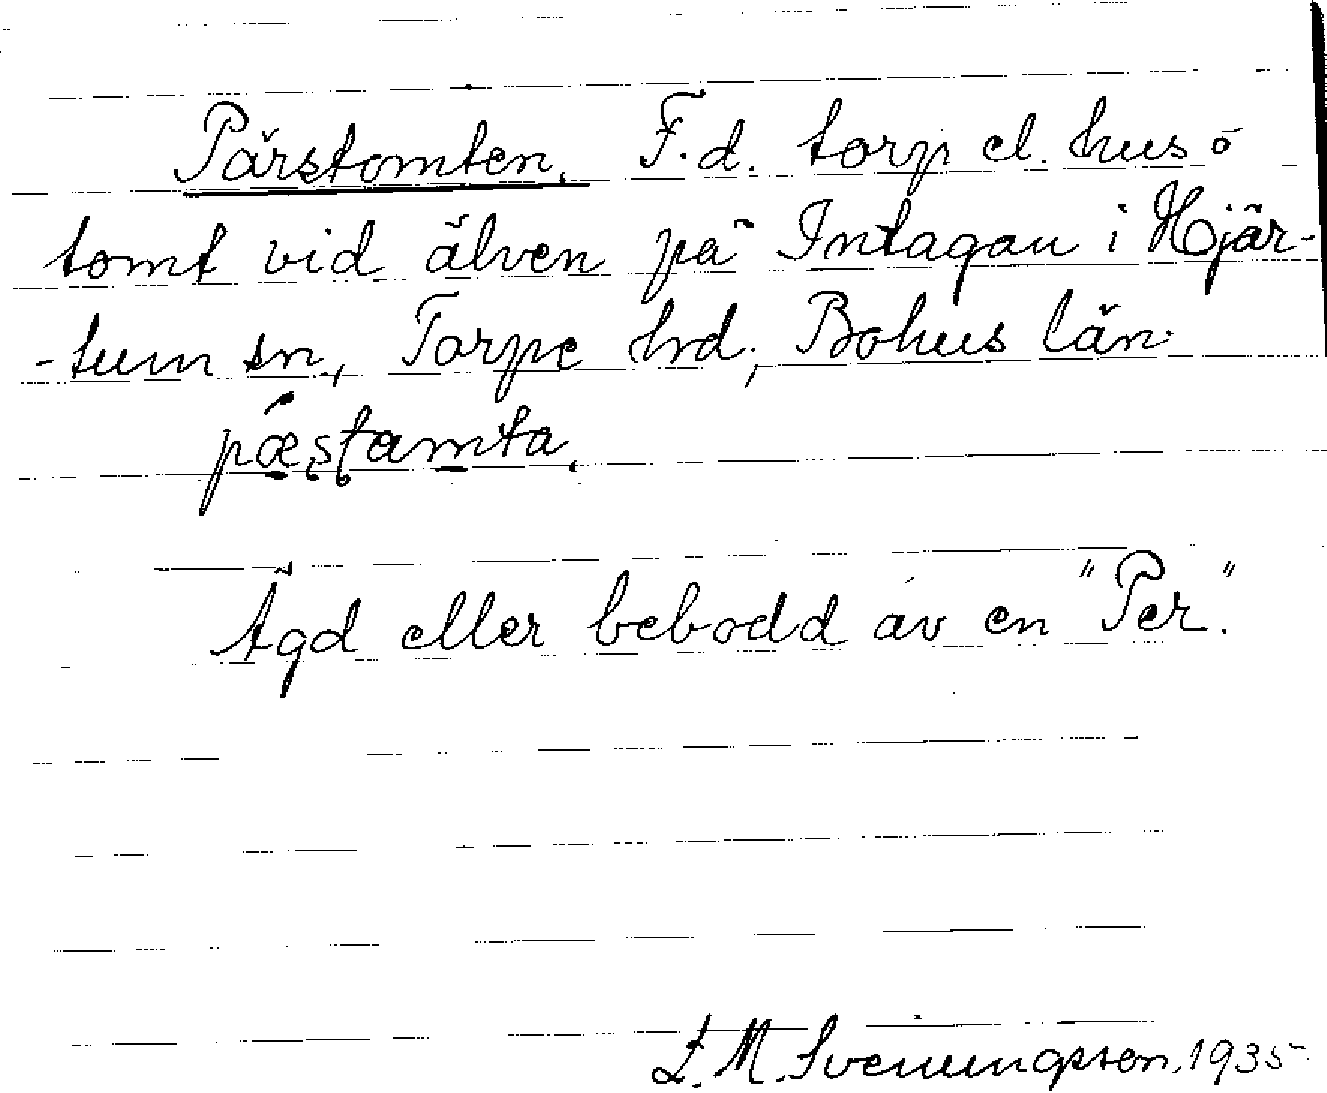 Pärstomten. F.d. torp el. hus o
tomt vid älven på Intagan i Hjär-
-tum sn, Torpe hrd, Bohus län
pæstamta.
Ägd eller bebodd av en "Per".
L. M. Svenungsson. 1935